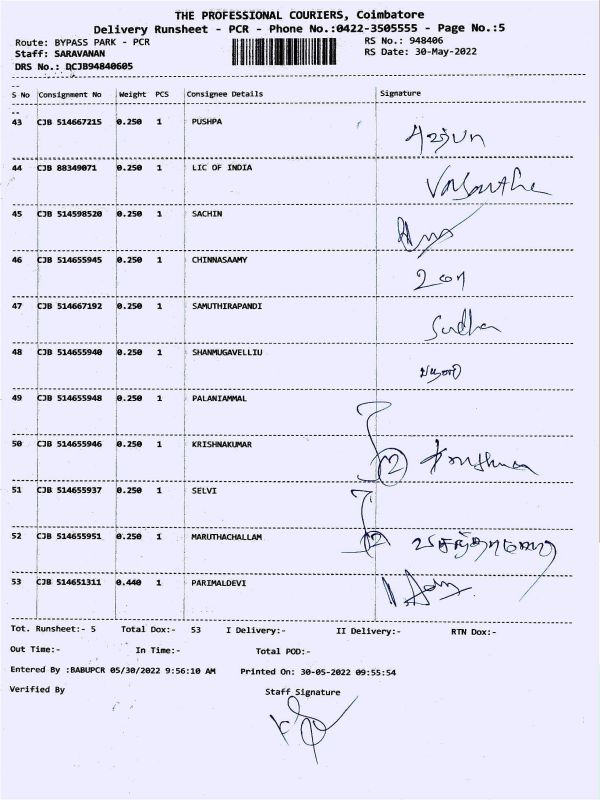 THE PROFESSIONAL COURIERS, Coimbatore
Delivery Runsheet - PCR - Phone No.:0422-3505555 - Page No.:5
Route: BYPASS PARK - PCR RS No.: 948406
Staff: SARAVANAN RS Date: 30-May-2022
DRS No.: DCJB94840605
S No Consignment No Weight PCS Consignee Details Signature
43 CJB 514667215 0.250 1 PUSHPA
44 CJB 88349071 0.250 1 LIC OF INDIA
45 CJB 514598520 0.250 1 SACHIN
46 CJB 514655945 0.250 1 CHINNASAAMY
47 CJB 514667192 0.250 1 SAMUTHIRAPANDI Sudha
48 CJB 514655940 0.250 1 SHANMUGAVELLIU
49 CJB 514655948 0.250 1 PALANIAMMAL
50 CJB 514655946 0.250 1 KRISHNAKUMAR 2
51 CJB 514655937 0.250 1 SELVI
52 CJB 514655951 0.250 1 MARUTHACHALLAM 2
53 CJB 514651311 0.440 1 PARIMALDEVI
Tot. Runsheet:- 5 Total Dox:- 53 I Delivery:- II Delivery:- RTN Dox:-
Out Time:- In Time:- Total POD:-
Entered By :BABUPCR 05/30/2022 9:56:10 AM Printed On: 30-05-2022 09:55:54
Verified By Staff Signature